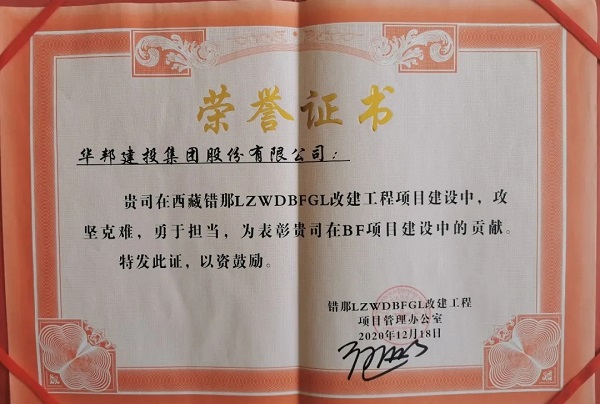 荣誉证书
华邦建投集团股份有限公司：
贵司在西藏错那LZWDBFGL改建工程项目建设中，攻
坚克难，勇于担当，为表彰贵司在BF项目建设中的贡献。
特发此证，以资鼓励。
错那LZWDBFGL改建工程
项目管理办公室
2020年12月18日